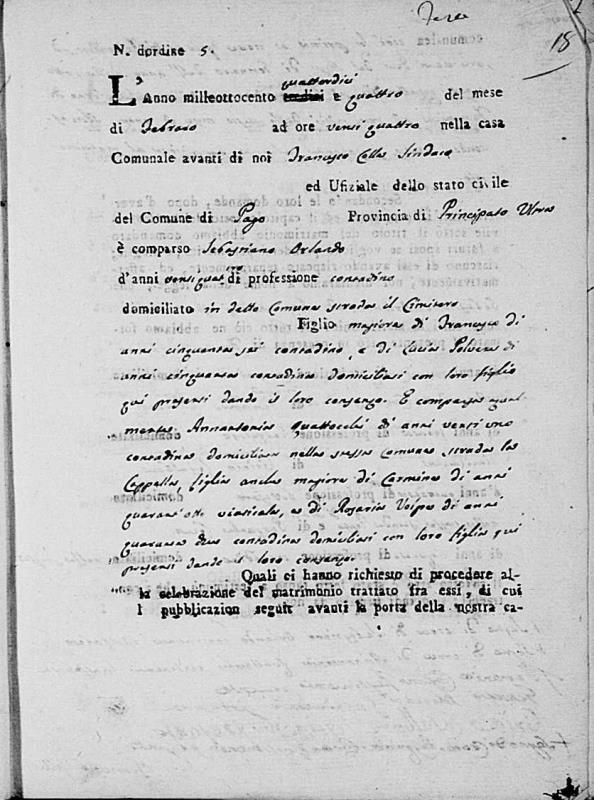 18
N. dordine 5.
quattordici
L'Anno milleottocento e quattro del mese
di Febraro ad ore venti quattro nella casa
Comunale avanti di noi Francesco Colle Sindaco
ed Ufiziale dello stato civile
del Comune di Pago Provincia di Principato Ultra
è comparso Sebastiano Orlando
d'anni venti quattro di professione contadino
domiciliato in detto Comune strada il Cimitero
Figlio maggiore di Francesco di
anni cinquanta sei contadino e di Lucia Polvere di
anni cinquanta contadina domiciliati con loro figlio
qui presenti dando il loro consenso. E comparsa qual
mente Annantonia Quattrocchi di anni venti uno
contadina domiciliata nella stessa Comune strada la
Cappella, figlia anche maggiore di Carmine di anni
quarant'otto vaticale, e di Rosaria Volpe di anni
quaranta due contadina domiciliati con loro figlia qui
presenti dando il loro consenso.
Quali ci hanno richiesto di procedere al-
la celebrazione del matrimonio trattato fra essi, di cui
l pubblicazion seguit avanti la porta della nostra ca-